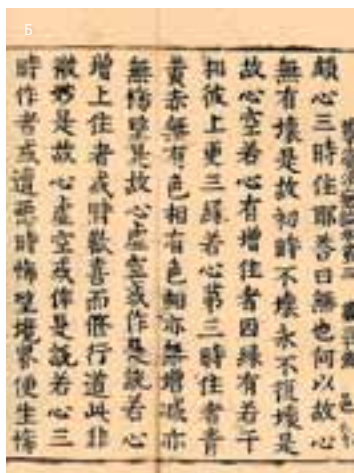 Б
頗心三時住耶荅曰無也何以故心
無有壞是故初時不壞永不復壞是
故心空若心有增住者因緣有若干
相彼上更三緣若心第三時住者青
黃赤無有色相有色相亦無增減亦
無悕望是故心虛空或作是說若心
增上住者或時歡喜而修行道此非
微妙是故心虛空或作是說若心三
時作者或遭惡時悕望境界便生悔